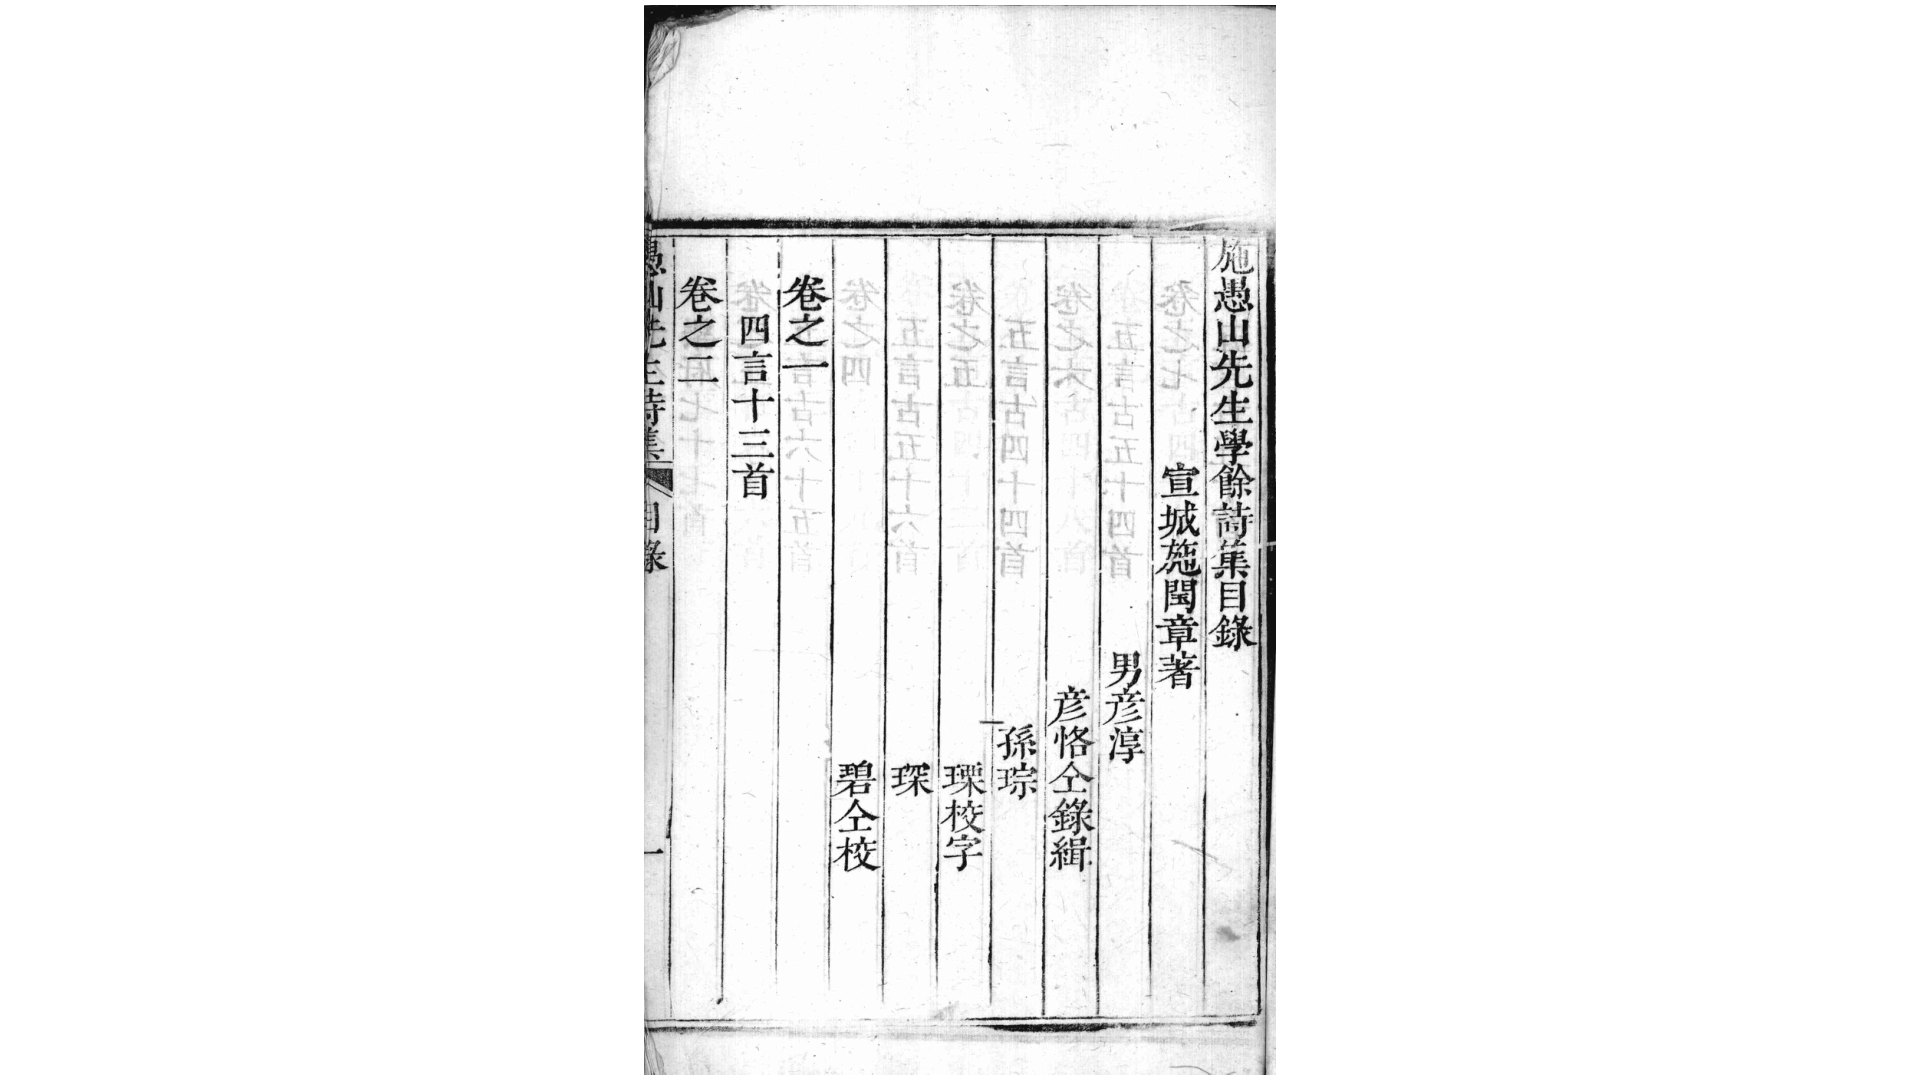 施愚山先生學餘詩集目錄
宣城施閏章著
男彥淳
彥恪仝錄緝
孫琮
瑮校字
琛
碧仝校
卷之一
四言十三首
卷之二
愚山先生詩集 目錄 一